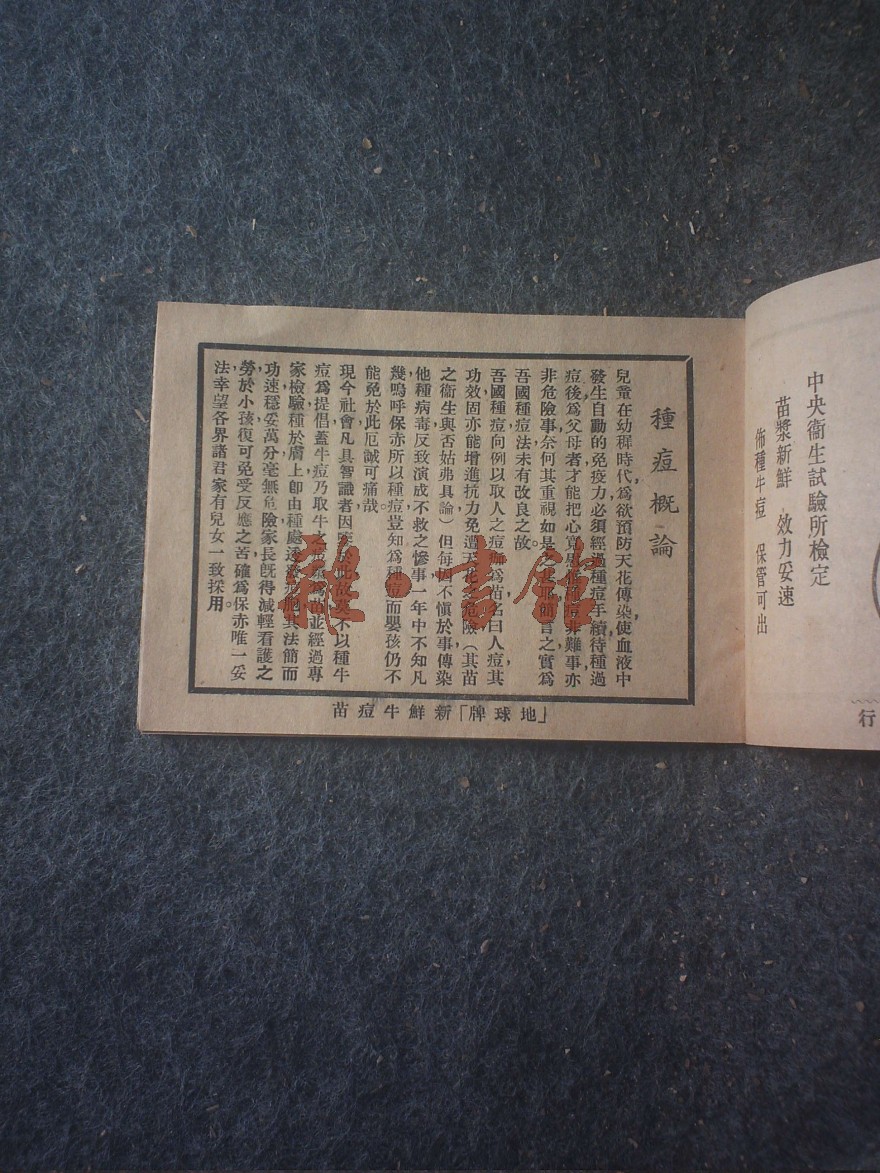 中央衞生試驗所檢定
苗漿新鮮 效力妥速
佈種牛痘 保管可出
行
種痘概論
兒童在幼穉時代，爲欲預防天花傳染，使血液中
發生自動的免疫力，必須經過種痘手續，待種過
痘後，爲父母者才能把心寬慰，種痘非難事，亦
非危險事，奈何其重視如是之甚耶，簡言之，實爲
吾國種痘法未有改良之故。
吾國種痘向例以取人之痘痂爲苗，名曰人痘，其
功效固亦能增進抗力，免遭天花之危險，（其苗
之衞生與否姑弗具論）但每因不愼於事，傳染
他種病毒，反致演成不救之慘事，一年中不知凡
幾，嗚呼，保赤所以種痘，豈知爲種痘而嬰孩仍不
能免於此厄，誠可痛哉。
現今社會，凡具智識者，因 此故，莫不以種牛
痘爲提倡，蓋牛痘乃取牛之 爲苗，並經過專
家檢驗，種於膚上，卽由種處 其法簡而
功速，穩妥萬分，毫無危險，家長旣得減輕看護之
勞，於小孩復可免受反應之苦，確爲保赤唯一妥
法，幸望各界諸君，家有兒女，一致採用。
「地球牌」新鮮牛痘苗
雜·書館